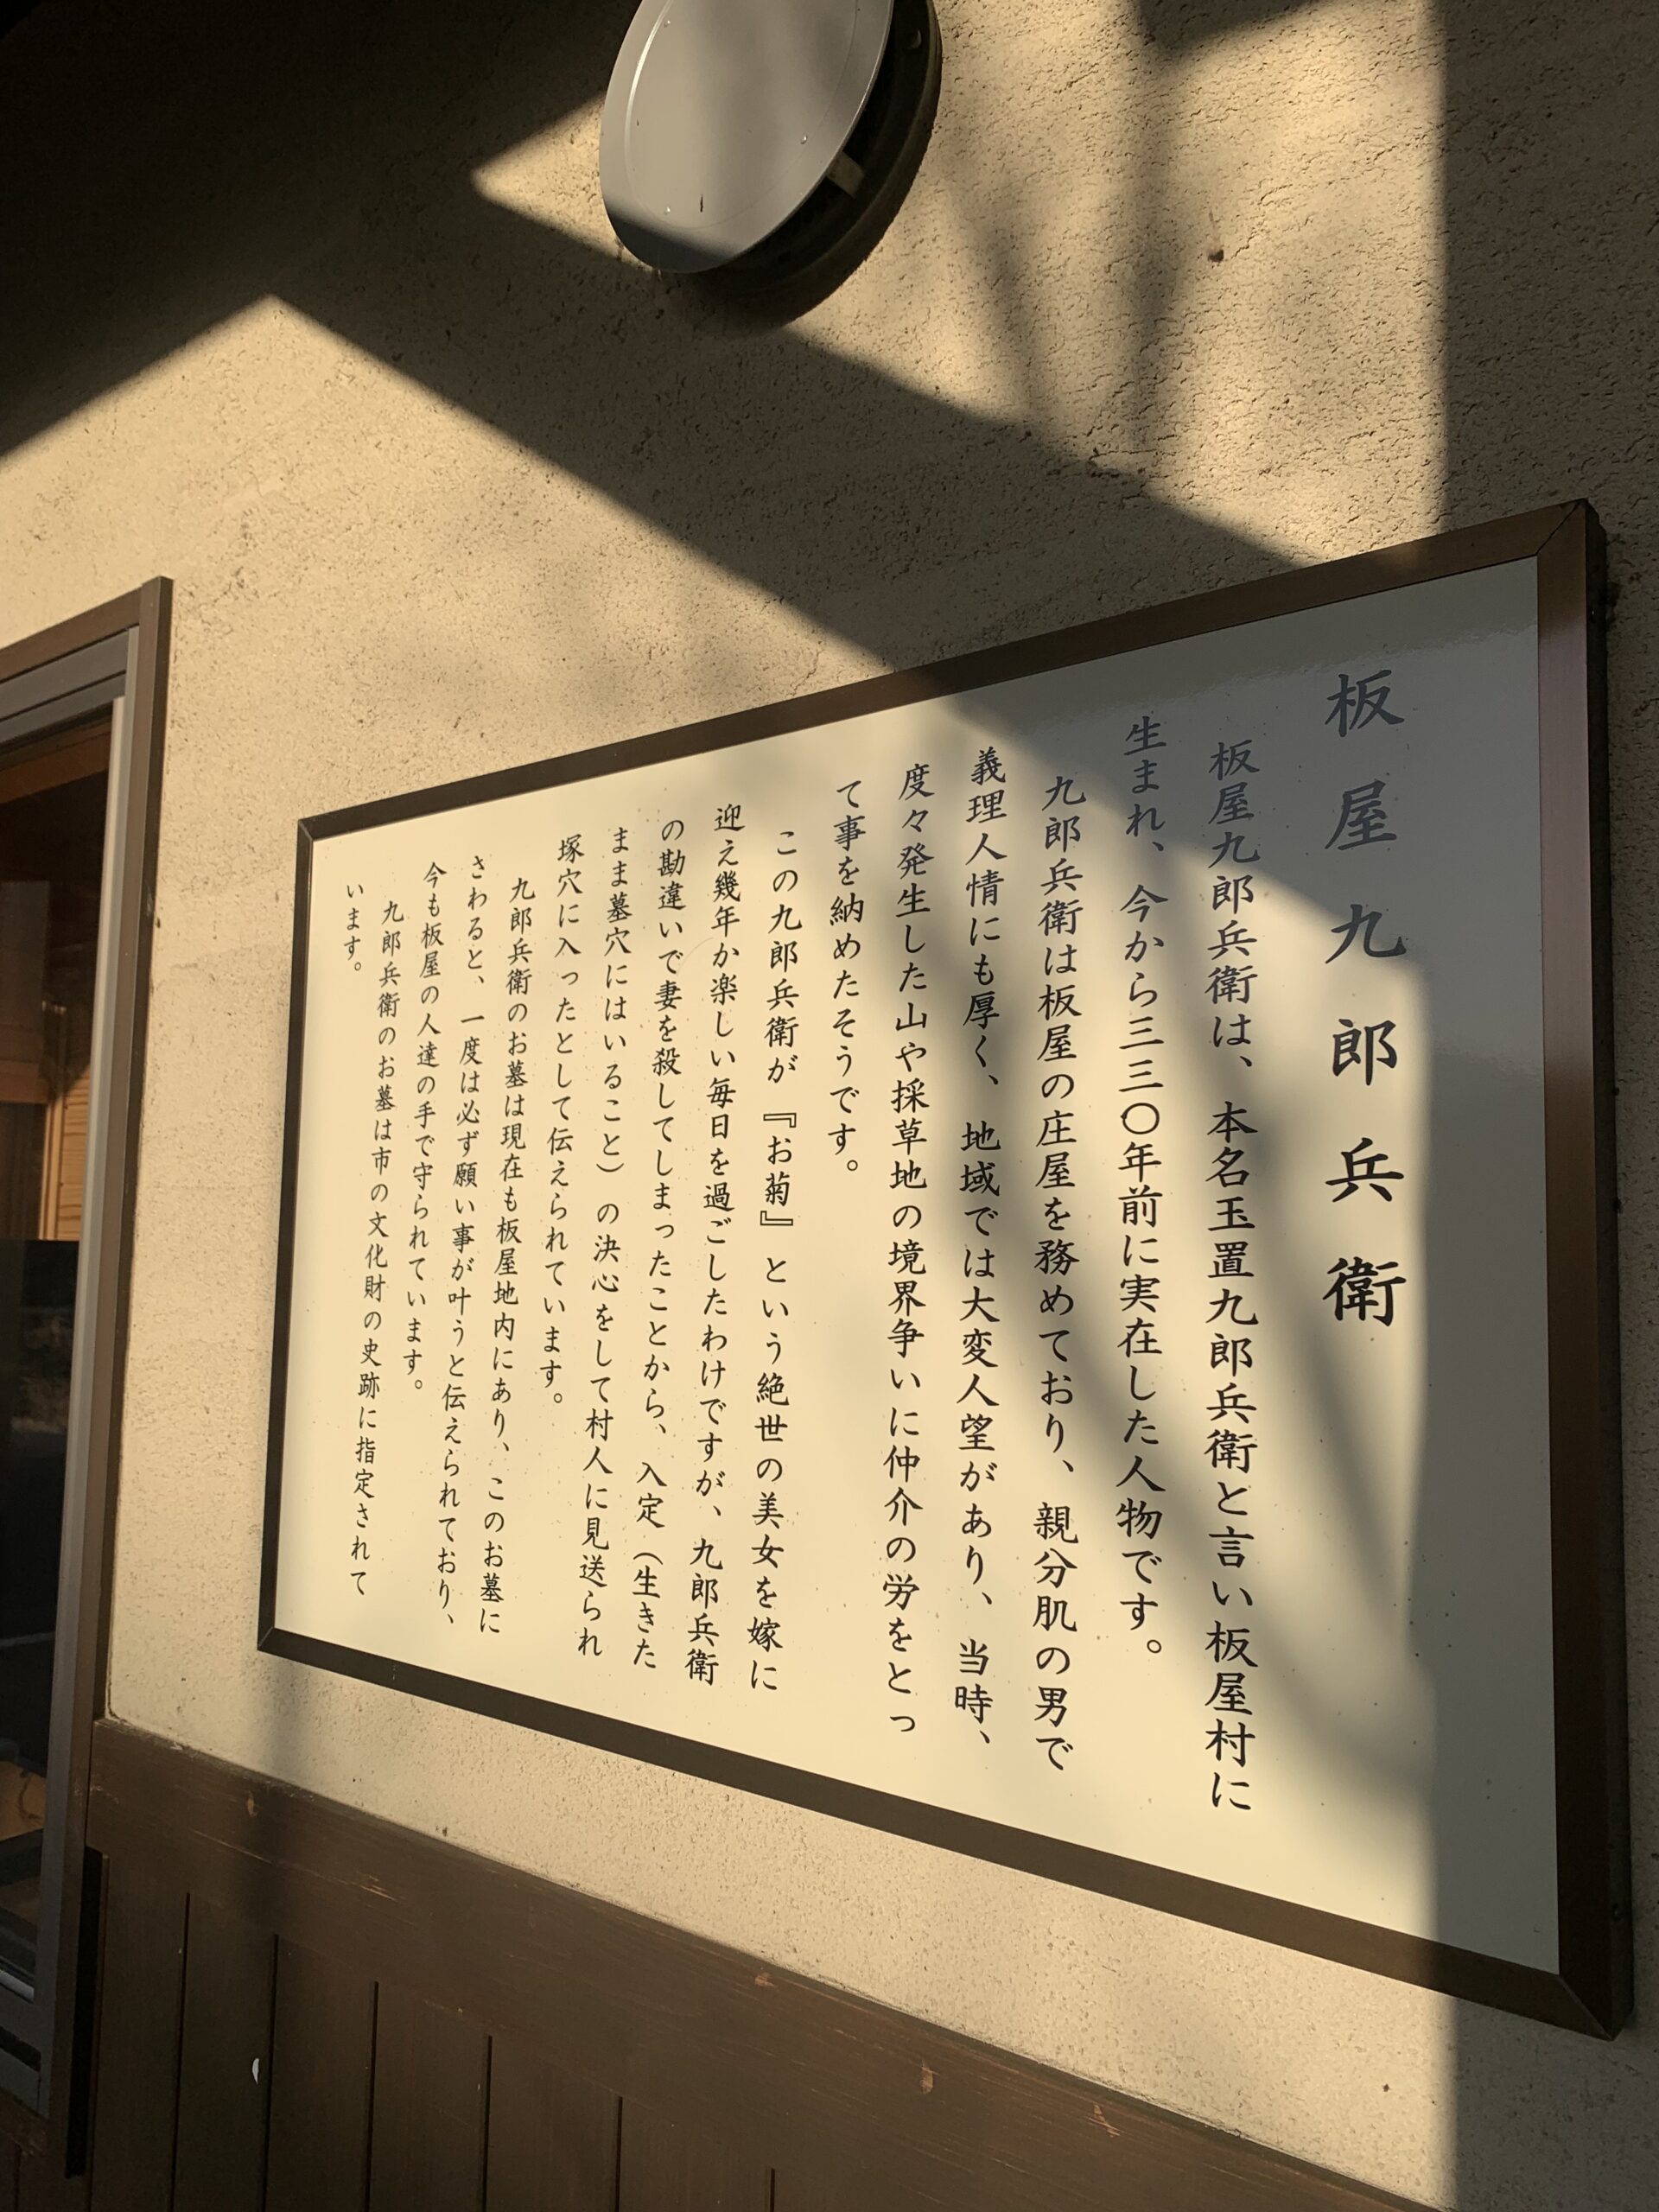 板屋九郎兵衛
板屋九郎兵衛は、本名玉置九郎兵衛と言い板屋村に
生まれ、今から三三〇年前に実在した人物です。
九郎兵衛は板屋の庄屋を務めており、親分肌の男で
義理人情にも厚く、地域では大変人望があり、当時、
度々発生した山や採草地の境界争いに仲介の労をとっ
て事を納めたそうです。
この九郎兵衛が『お菊』という絶世の美女を嫁に
迎え幾年か楽しい毎日を過ごしたわけですが、九郎兵衛
の勘違いで妻を殺してしまったことから、入定（生きた
まま墓穴にはいること）の決心をして村人に見送られ
塚穴に入ったとして伝えられています。
九郎兵衛のお墓は現在も板屋地内にあり、このお墓に
さわると、一度は必ず願い事が叶うと伝えられており、
今も板屋の人達の手で守られています。
九郎兵衛のお墓は市の文化財の史跡に指定されて
います。